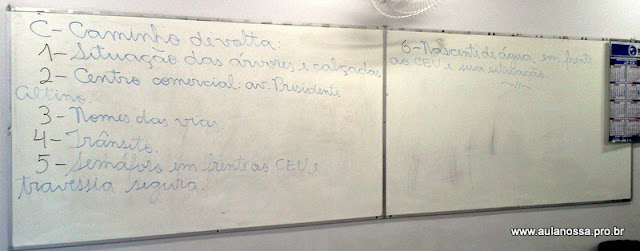 C- Caminho de volta:
1- Situação das árvores e calçadas
2- Centro comercial: av. Presidente
Altino.
3- Nomes das vias.
4- Trânsito.
5- Semáforo em frente ao CEU, e
travessia segura.
6- Nascente de água em frente
ao CEU e sua situação.
www.aulanossa.pro.br